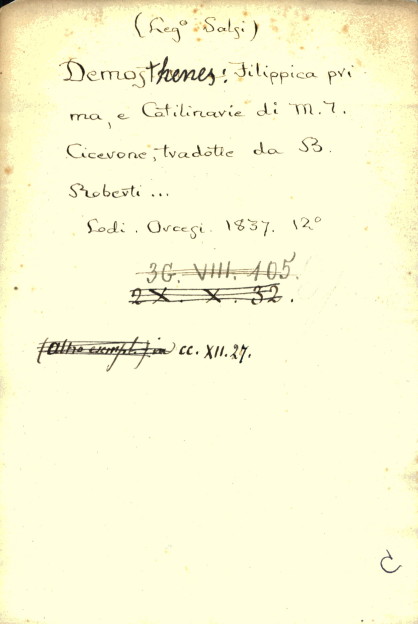 (Leg° Salsi)
Demosthenes: Filippica pri-
ma, e Catilinarie di M. T.
Cicerone; tradotte da B.
Roberti...
Lodi. Orcesi. 1837. 12°
3G. VIII. 105.
2 X. X. 32.
(Altro esempl.) in CC. XII. 27.
C